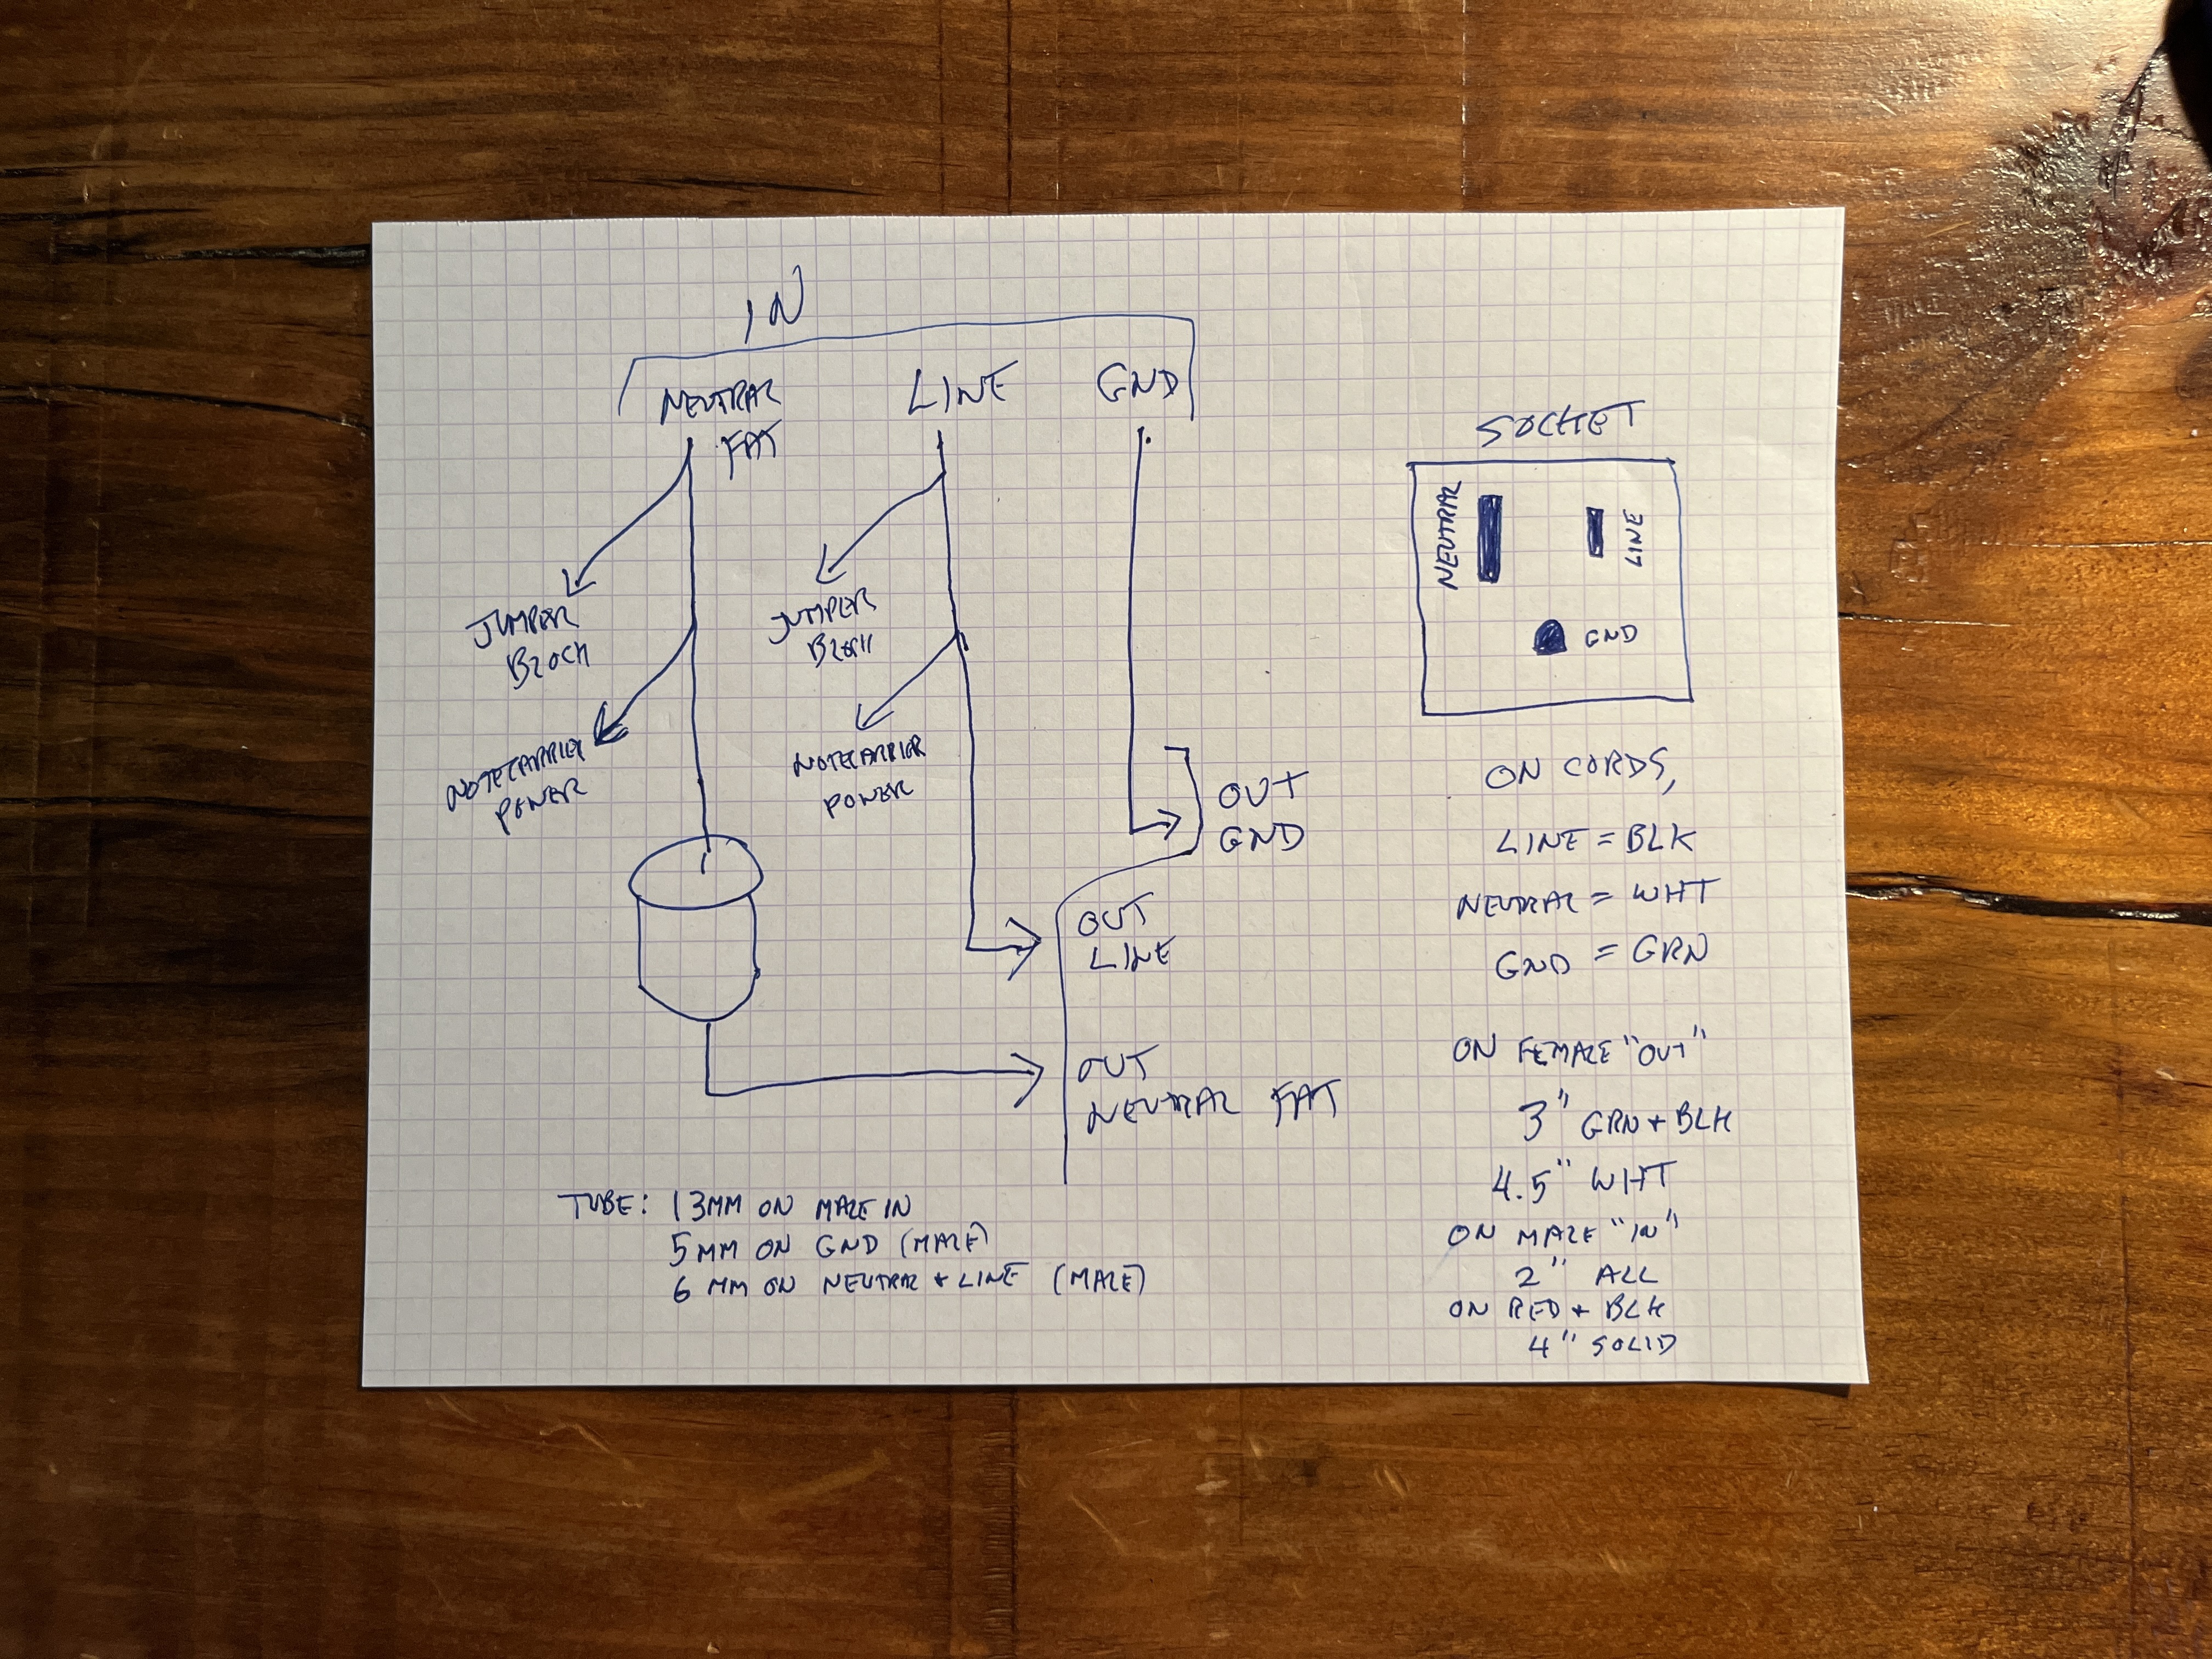 IN
NEUTRAL
FAT
LINE
GND
JUMPER
BLOCK
JUMPER
BLOCK
NOTECARRIER
POWER
NOTECARRIER
POWER
OUT
GND
OUT
LINE
OUT
NEUTRAL FAT
TUBE: 13MM ON MALE IN
5MM ON GND (MALE)
6 MM ON NEUTRAL + LINE (MALE)
SOCKET
NEUTRAL
LINE
GND
ON CORDS,
LINE = BLK
NEUTRAL = WHT
GND = GRN
ON FEMALE "OUT"
3" GRN + BLK
4.5" WHT
ON MALE "IN"
2" ALL
ON RED + BLK
4" SOLID